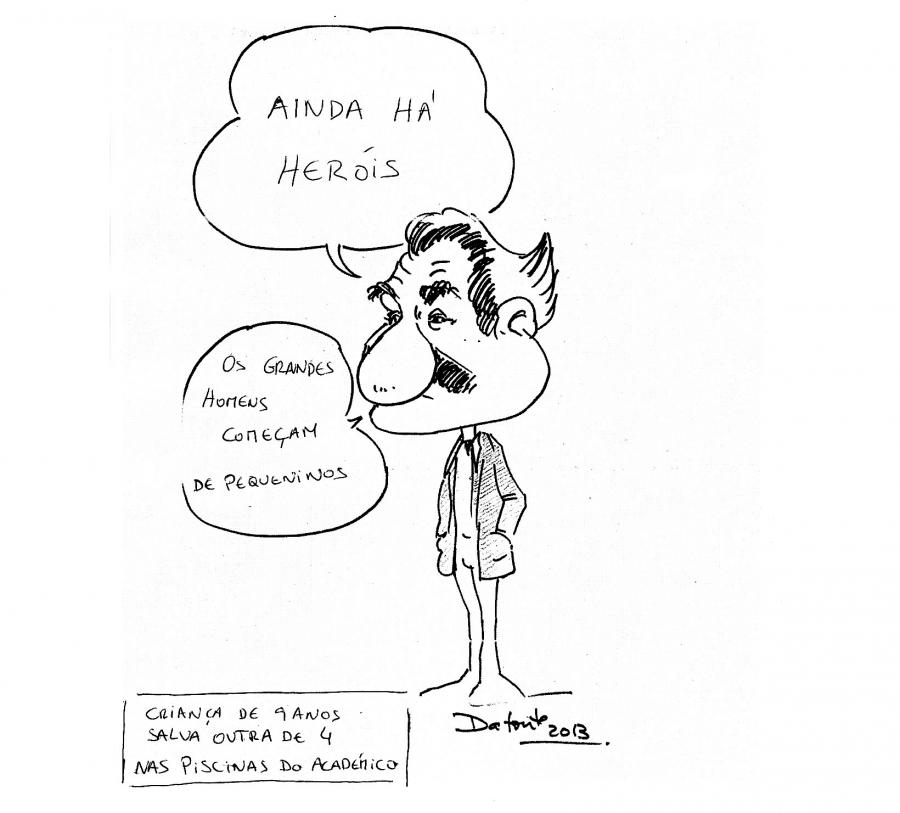 AINDA HÁ
HERÓIS
OS GRANDES
HOMENS
COMEÇAM
DE PEQUENINOS
CRIANÇA DE 9 ANOS
SALVA OUTRA DE 4
NAS PISCINAS DO ACADÉMICO
2013